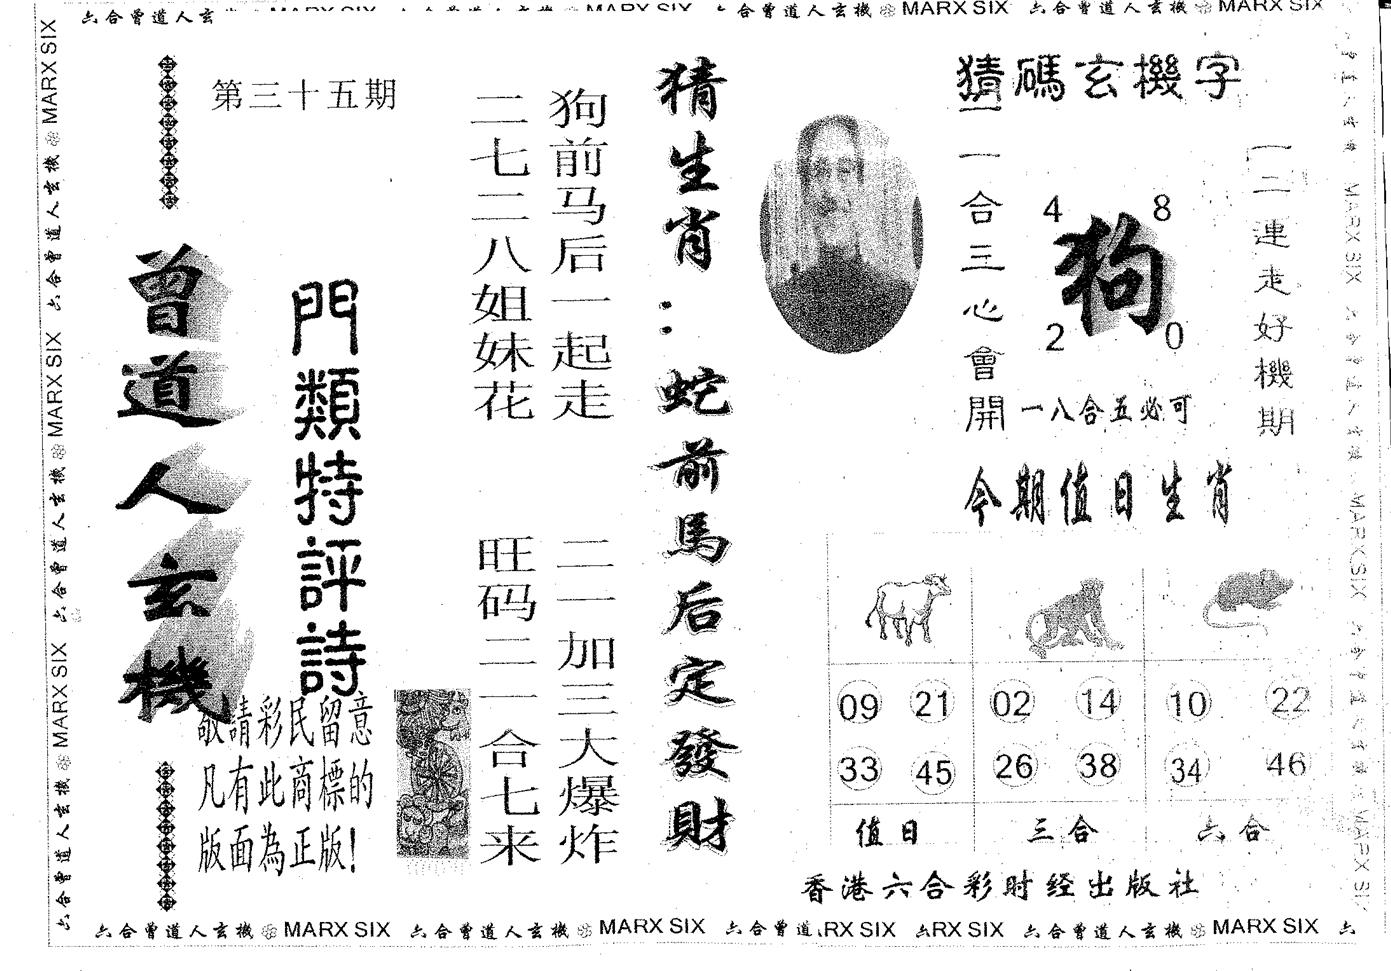 六合曾道人玄
六合曾道人玄機 MARX SIX
六合曾道人玄機 MARX SIX
第三十五期
曾道人玄機
門類特評詩
敬請彩民留意
凡有此商標的
版面為正版!
狗前马后一起走
二七二八姐妹花
二一加三大爆炸
旺码二一合七来
猜生肖:蛇前馬后定發財
猜碼玄機字
一二連走好機期
二一合三心會開
4 8
狗
2 0
一八合五必可
今期值日生肖
09 21 02 14 10 22
33 45 26 38 34 46
值日 三合 六合
香港六合彩时经出版社
六合曾道人玄機 MARX SIX 六合曾道人玄機 MARX SIX 六合曾道 RX SIX 六RX SIX 六合曾道人玄機 MARX SIX 六
MARX SIX 六合曾道人玄機 MARX SIX 六合曾道人玄機 MARX SIX 六合曾道人玄機